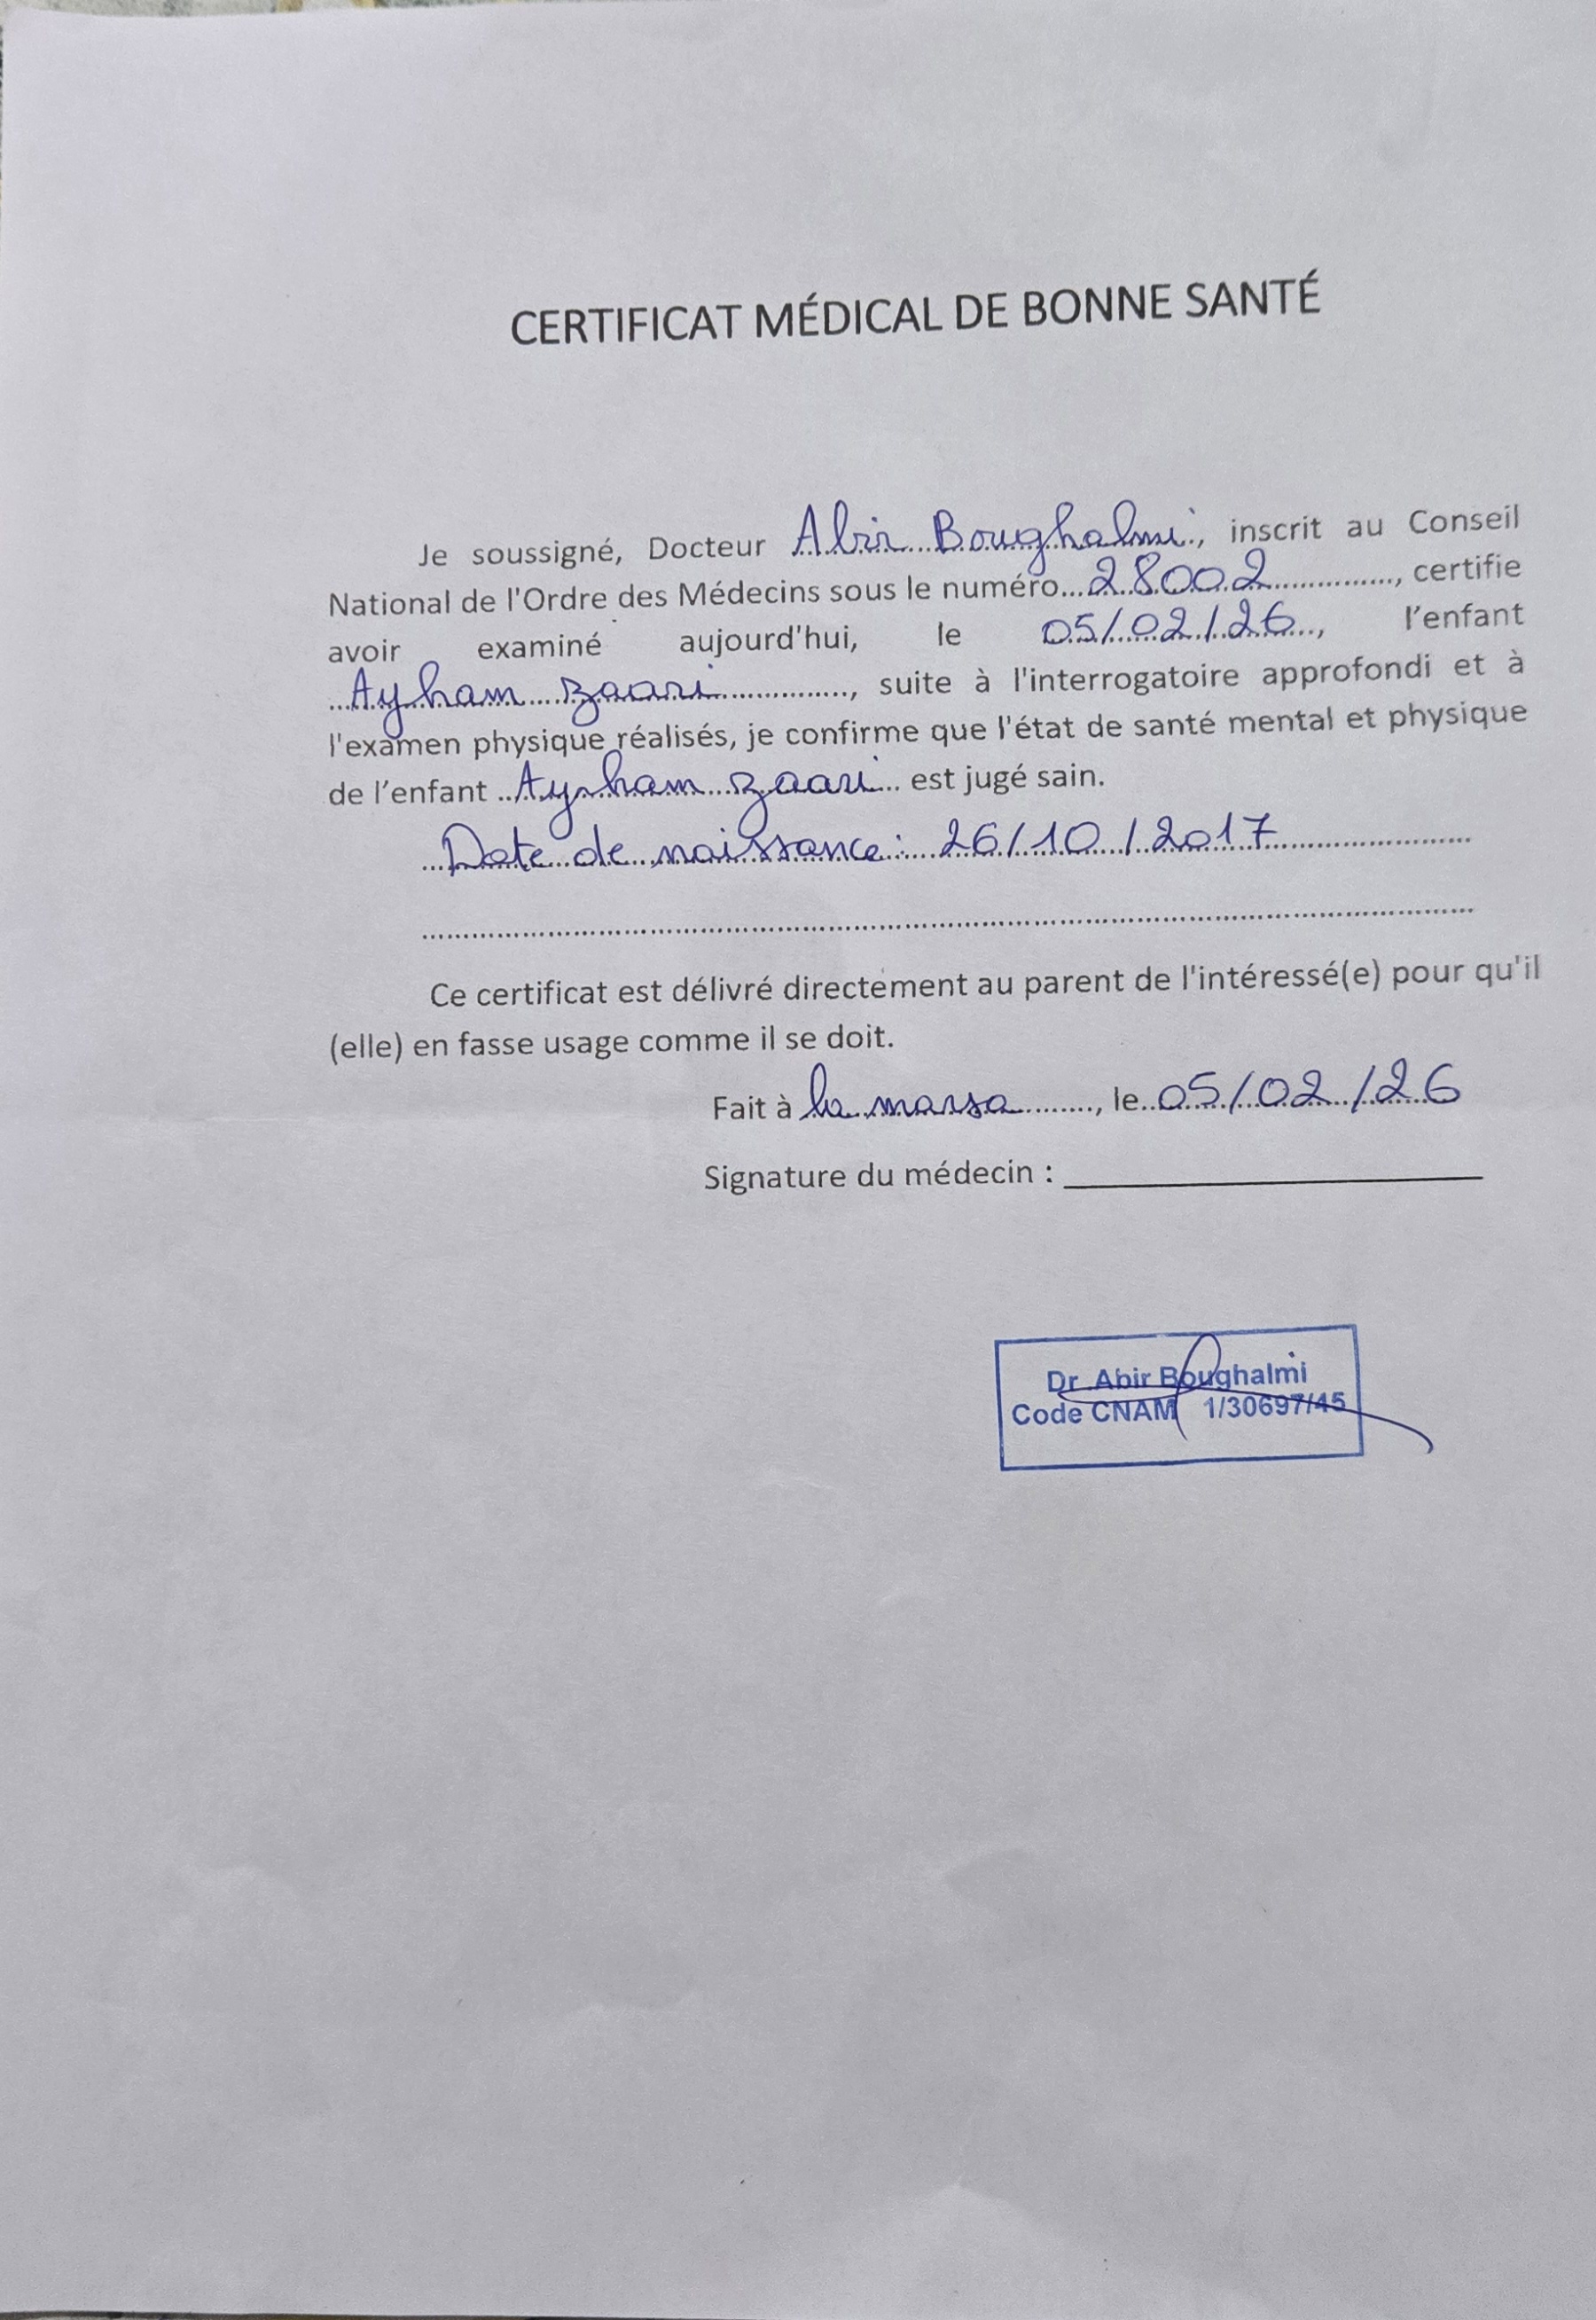 CERTIFICAT MÉDICAL DE BONNE SANTÉ
Je soussigné, Docteur Abir Boughalmi, inscrit au Conseil
National de l'Ordre des Médecins sous le numéro...28002..............., certifie
avoir examiné aujourd'hui, le 05/02/26..., l'enfant
...Ayham zaari..............., suite à l'interrogatoire approfondi et à
l'examen physique réalisés, je confirme que l'état de santé mental et physique
de l'enfant ..Ayham zaari... est jugé sain.
...Date de naissance: 26/10/2017........................
....................................................................................................
Ce certificat est délivré directement au parent de l'intéressé(e) pour qu'il
(elle) en fasse usage comme il se doit.
Fait à la marsa.........., le..05/02/26
Signature du médecin : ____________________
Dr Abir Boughalmi
Code CNAM 1/30697/45